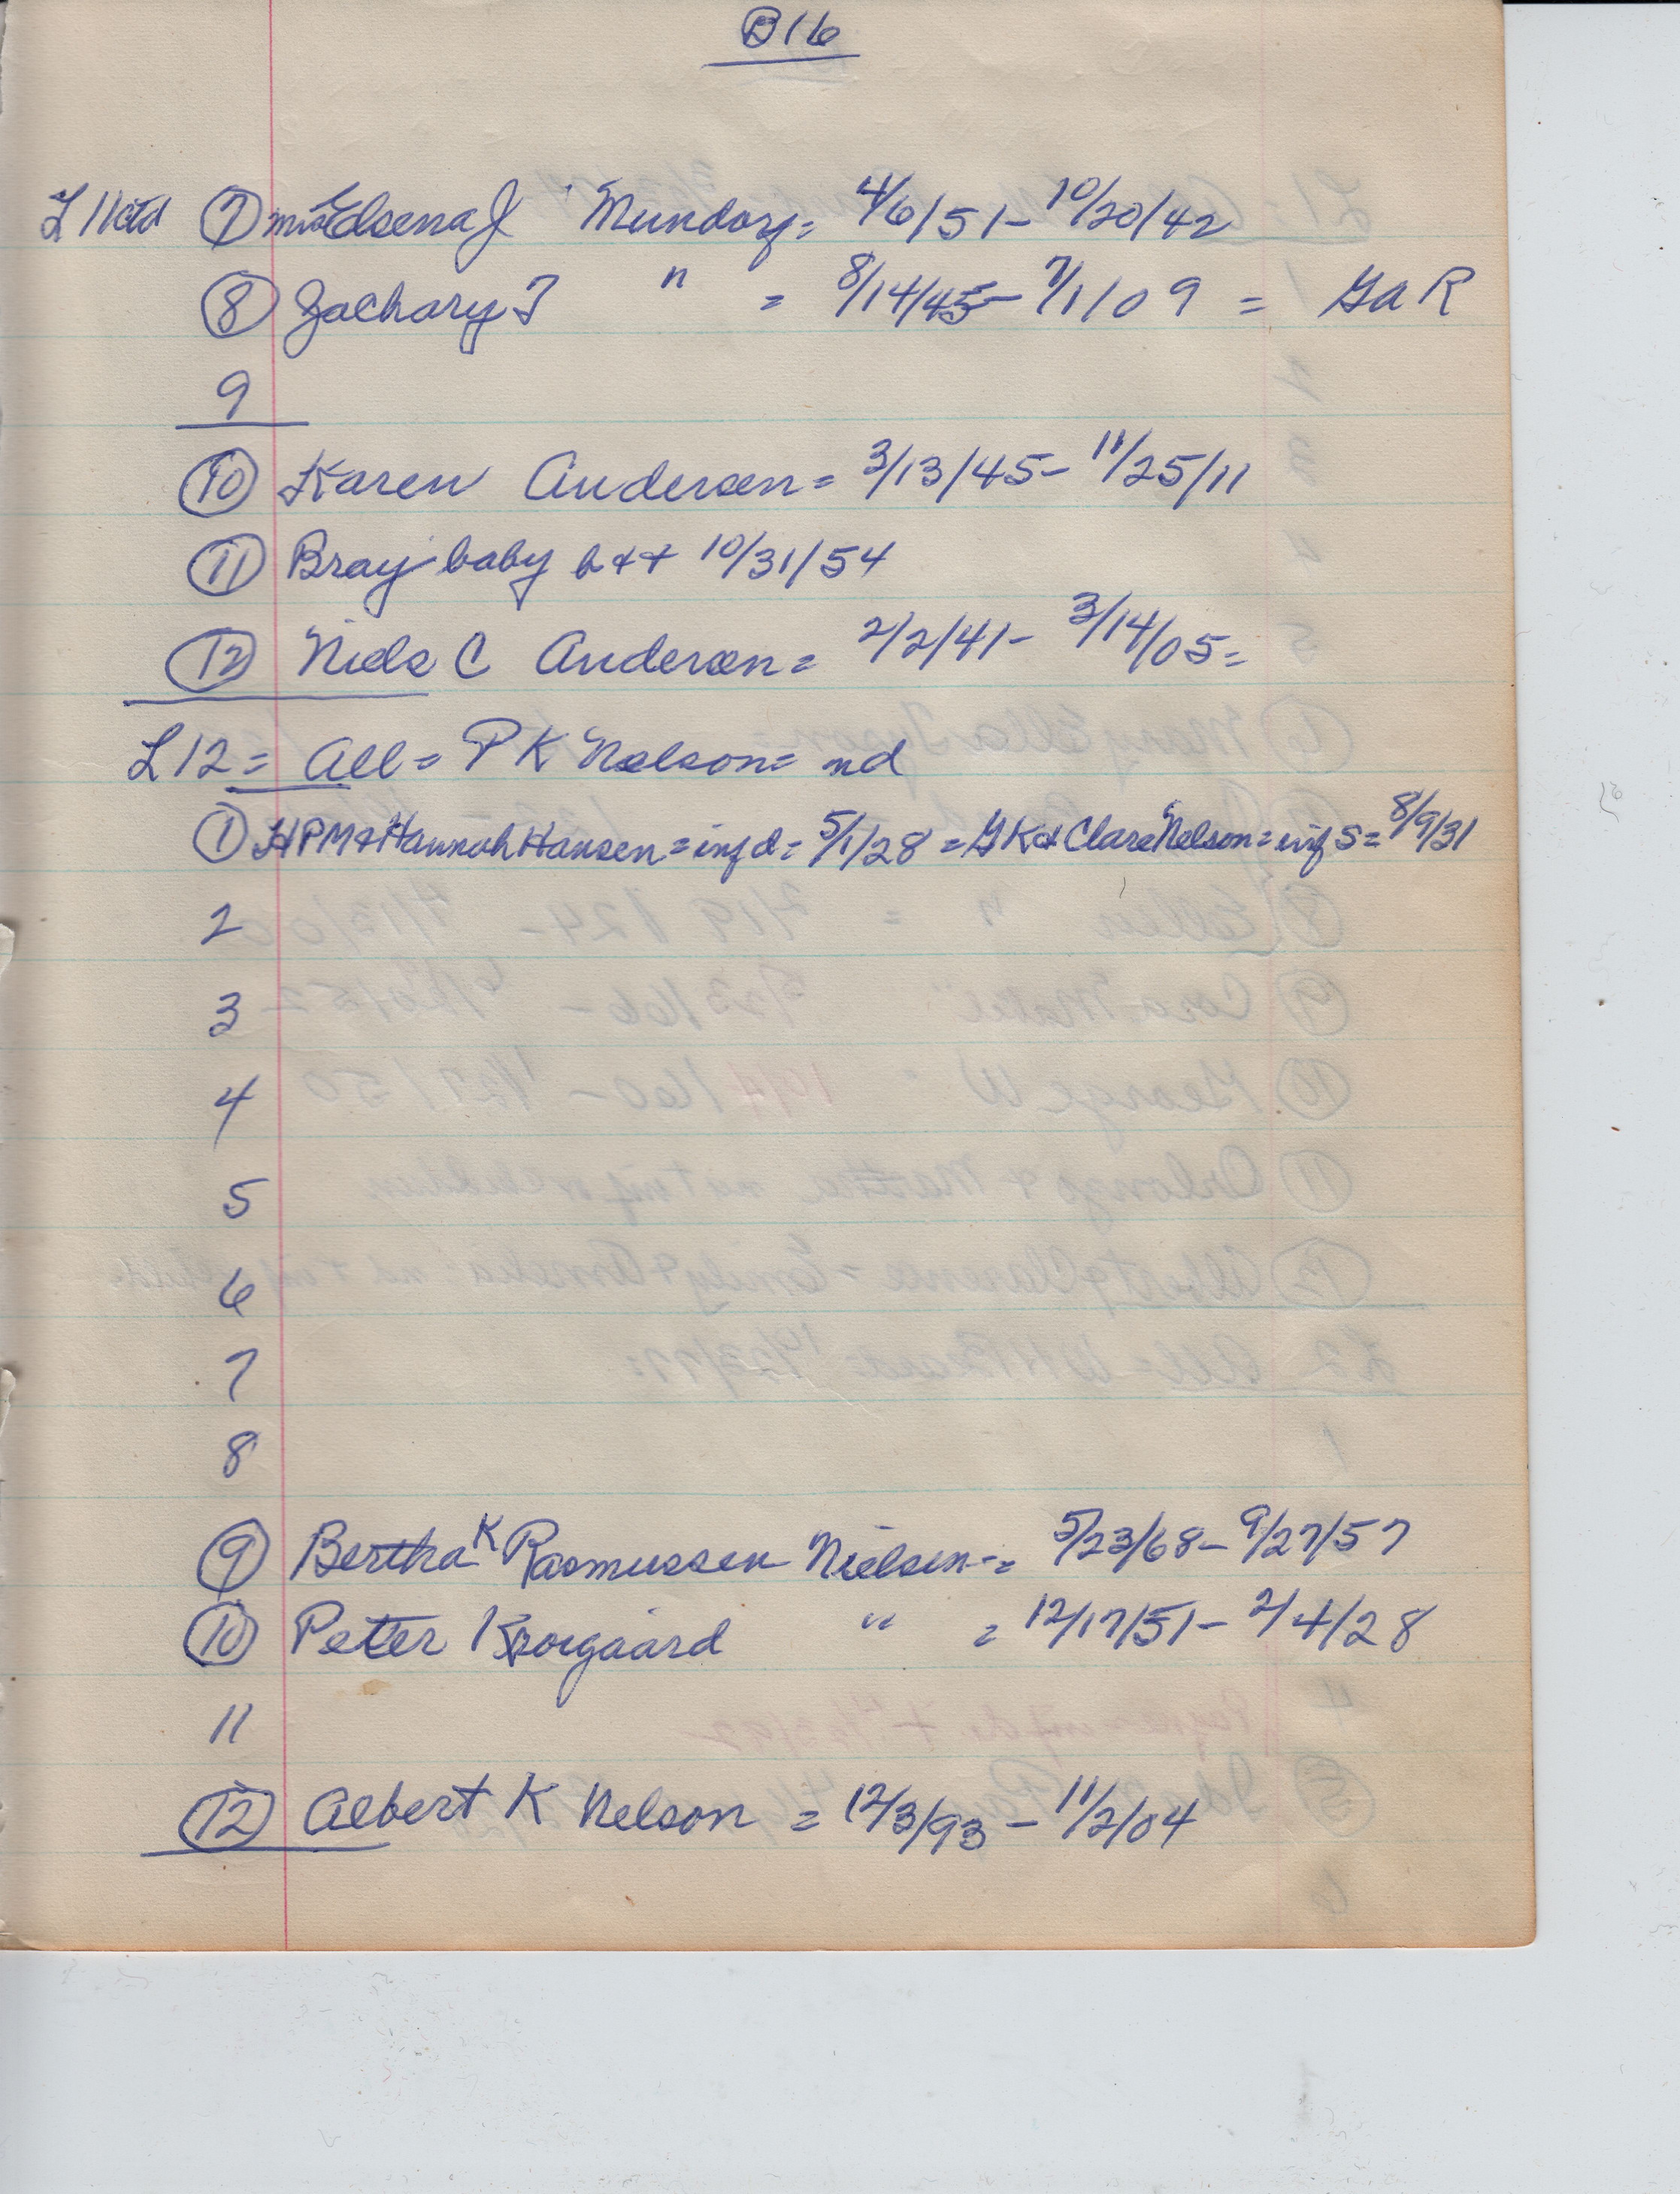 B16
L 11 ctd (7) mrs Edsena J Mundorf = 4/6/51 - 10/20/42
(8) Zachary T " = 8/14/45 - 7/1/09 = GaR
9
(10) Karen Andersen = 3/13/45 - 11/25/11
(11) Bray baby b + + 10/31/54
(12) Niels C Andersen = 2/2/41 - 3/14/05 =
L 12 = All = P K Nelson = nd
(1) HPM & Hannah Hansen = inf d = 5/1/28 = G K & Clare Nelson = inf S = 8/9/31
2
3
4
5
6
7
8
(9) Bertha K Rasmussen Nielsen - = 5/23/68 - 9/27/57
(10) Peter " = 12/17/51 - 2/4/28
11
(12) Albert K Nelson = 12/3/93 - 11/2/04